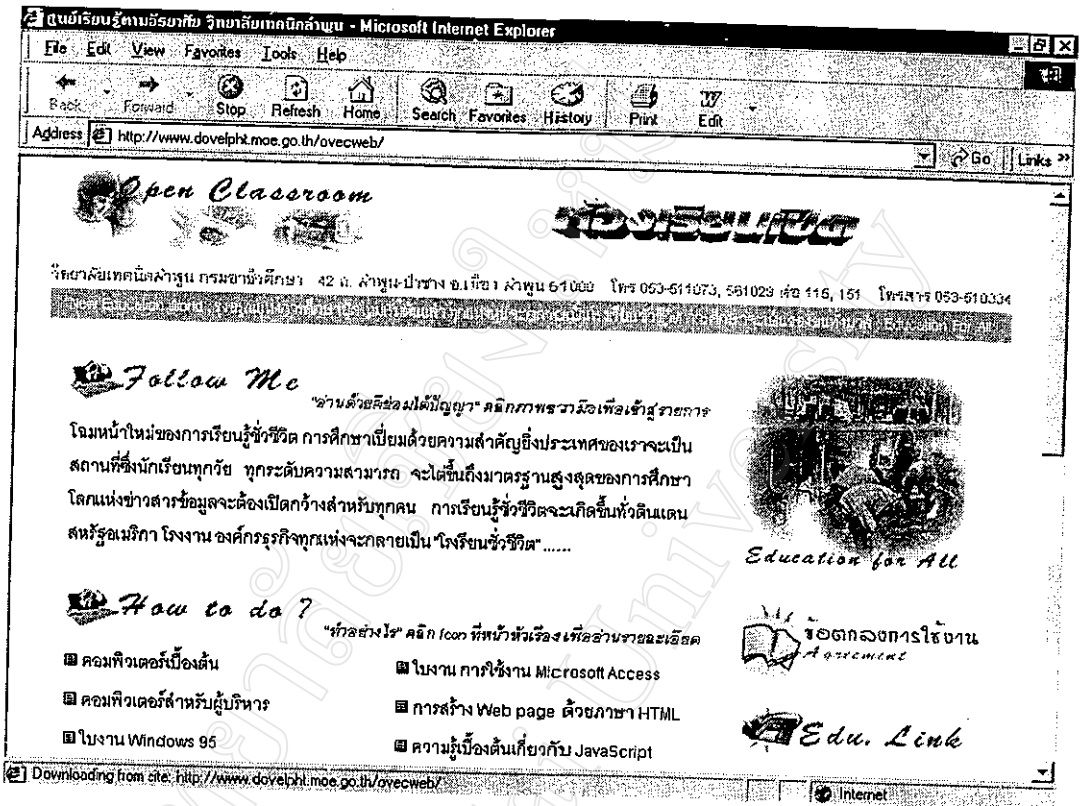 ศูนย์เรียนรู้ตามอัธยาศัย วิทยาลัยเทคนิคลำพูน - Microsoft Internet Explorer
File Edit View Favorites Tools Help
Back Forward Stop Refresh Home Search Favorites History Print Edit
Address http://www.dovelpht.moe.go.th/ovecweb/ Go Links »
Open Classroom
ห้องเรียนเปิด
วิทยาลัยเทคนิคลำพูน กรมอาชีวศึกษา 42 ถ. ลำพูน-ป่าซาง อ.เมือง ลำพูน 51000 โทร 053-511073, 561029 ต่อ 115, 151 โทรสาร 053-510334
Education For All
Follow Me
"อ่านด้วยดีย่อมได้ปัญญา" คลิกภาพขวามือเพื่อเข้าสู่รายการ
โฉมหน้าใหม่ของการเรียนรู้ชั่วชีวิต การศึกษาเปี่ยมด้วยความสำคัญยิ่งประเทศของเราจะเป็น
สถานที่ซึ่งนักเรียนทุกวัย ทุกระดับความสามารถ จะไต่ขึ้นถึงมาตรฐานสูงสุดของการศึกษา
โลกแห่งข่าวสารข้อมูลจะต้องเปิดกว้างสำหรับทุกคน การเรียนรู้ชั่วชีวิตจะเกิดขึ้นทั่วดินแดน
สหรัฐอเมริกา โรงงาน องค์กรธุรกิจทุกแห่งจะกลายเป็น "โรงเรียนชั่วชีวิต"......
Education for All
How to do ?
"ทำอย่างไร" คลิก Icon ที่หน้าหัวเรื่อง เพื่ออ่านรายละเอียด
ข้อตกลงการใช้งาน
Agreement
คอมพิวเตอร์เบื้องต้น
ใบงาน การใช้งาน Microsoft Access
คอมพิวเตอร์สำหรับผู้บริหาร
การสร้าง Web page ด้วยภาษา HTML
ใบงาน Windows 95
ความรู้เบื้องต้นเกี่ยวกับ JavaScript
Edu. Link
Downloading from site: http://www.dovelpht.moe.go.th/ovecweb/
Internet